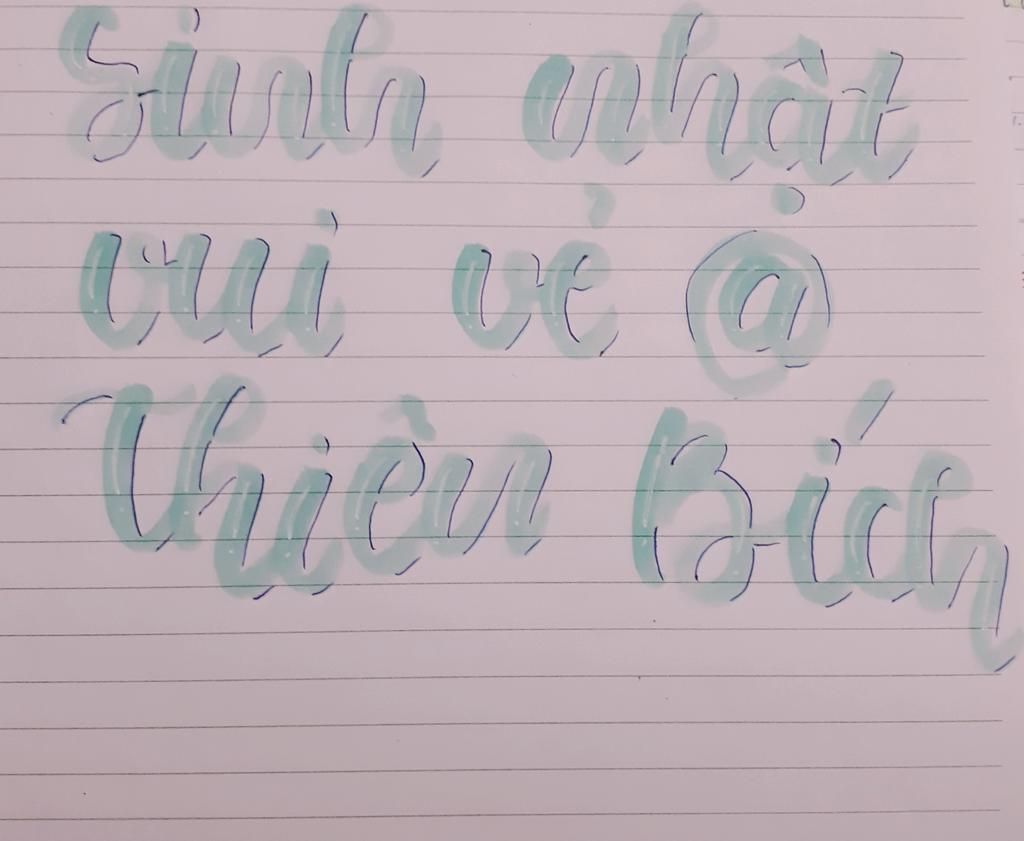 Sinh nhật
vui vẻ @
Thiên Bích